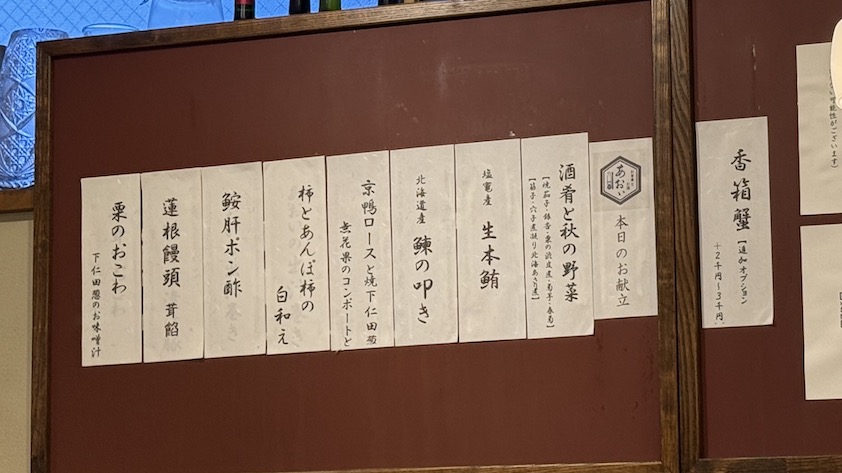 香箱蟹【追加オプション
+2千円〜3千円】
あおい
本日のお献立
酒肴と秋の野菜
【焼茄子・銀杏・栗の渋皮煮・菊芋・春菊】
【筋子・穴子煮凝り・北海あさり煮】
塩竈産 生本鮪
北海道産 鰊の叩き
京鴨ロースと焼下仁田葱
無花果のコンポートと
柿とあんぽ柿の
白和え
鮟肝ポン酢
蓮根饅頭 茸餡
栗のおこわ
下仁田葱のお味噌汁
可能性がございます)